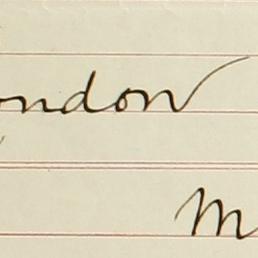 ondon
M